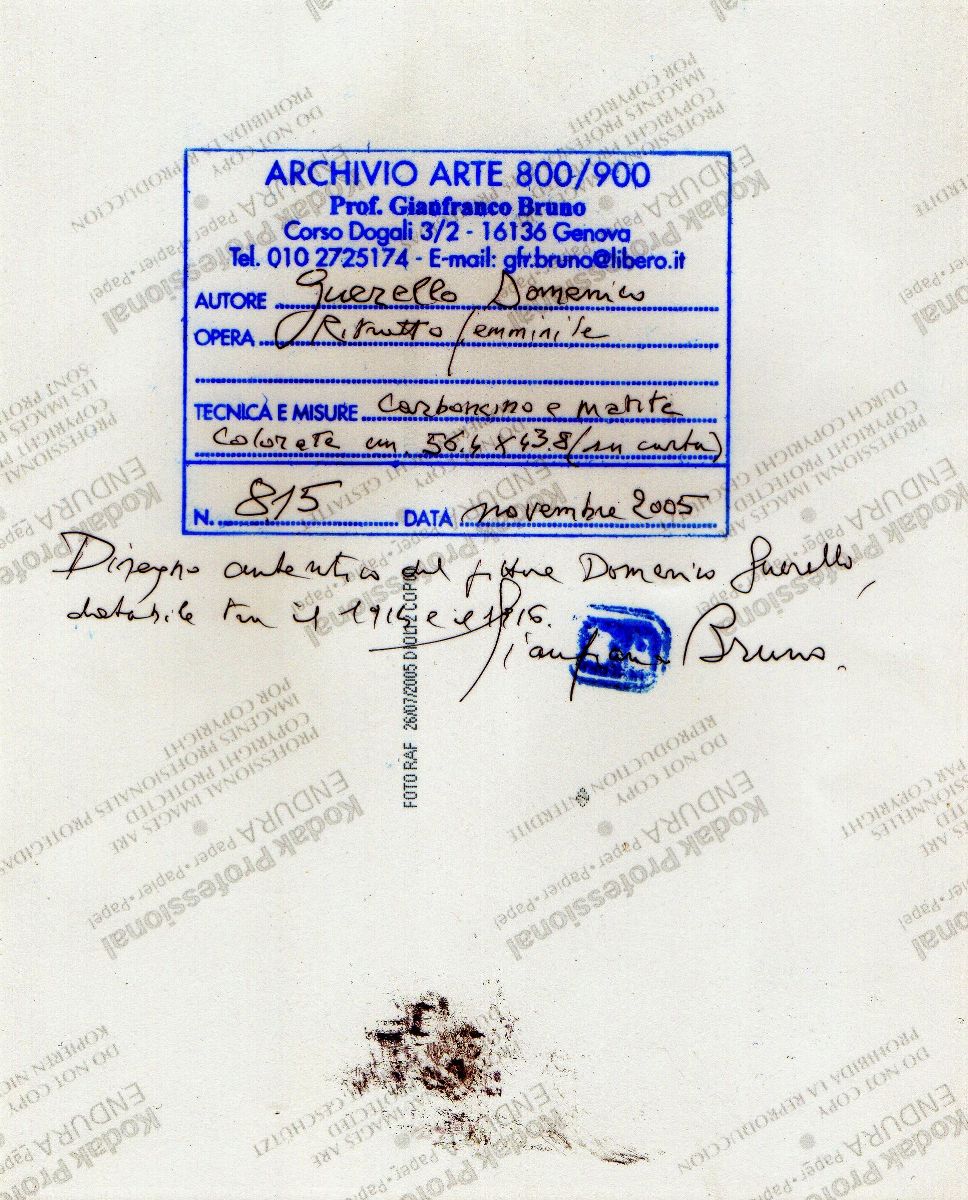 ARCHIVIO ARTE 800/900
Prof. Gianfranco Bruno
Corso Dogali 3/2 - 16136 Genova
Tel. 010 2725174 - E-mail: gfr.bruno@libero.it
AUTORE Guerello Domenico
OPERA Ritratto femminile
TECNICA E MISURE Carboncino e matite
colorate cm. 56.4 x 43.8 (su carta)
N. 815 DATA novembre 2005
Disegno autentico del pittore Domenico Guerello,
databile tra il 1915 e il 1916.
Gianfranco Bruno.
FOTO RAF 26/07/2005
DO NOT COPY
PROHIBIDA LA REPRODUCCION
PROFESSIONAL IMAGES ARE
COPYRIGHT PROTECTED
IMAGENES PROFESIONALES PROTEGIDAS
POR COPYRIGHT
Kodak Professional
ENDURA Paper•Papier•Papel
DO NOT COPY
REPRODUCTION INTERDITE